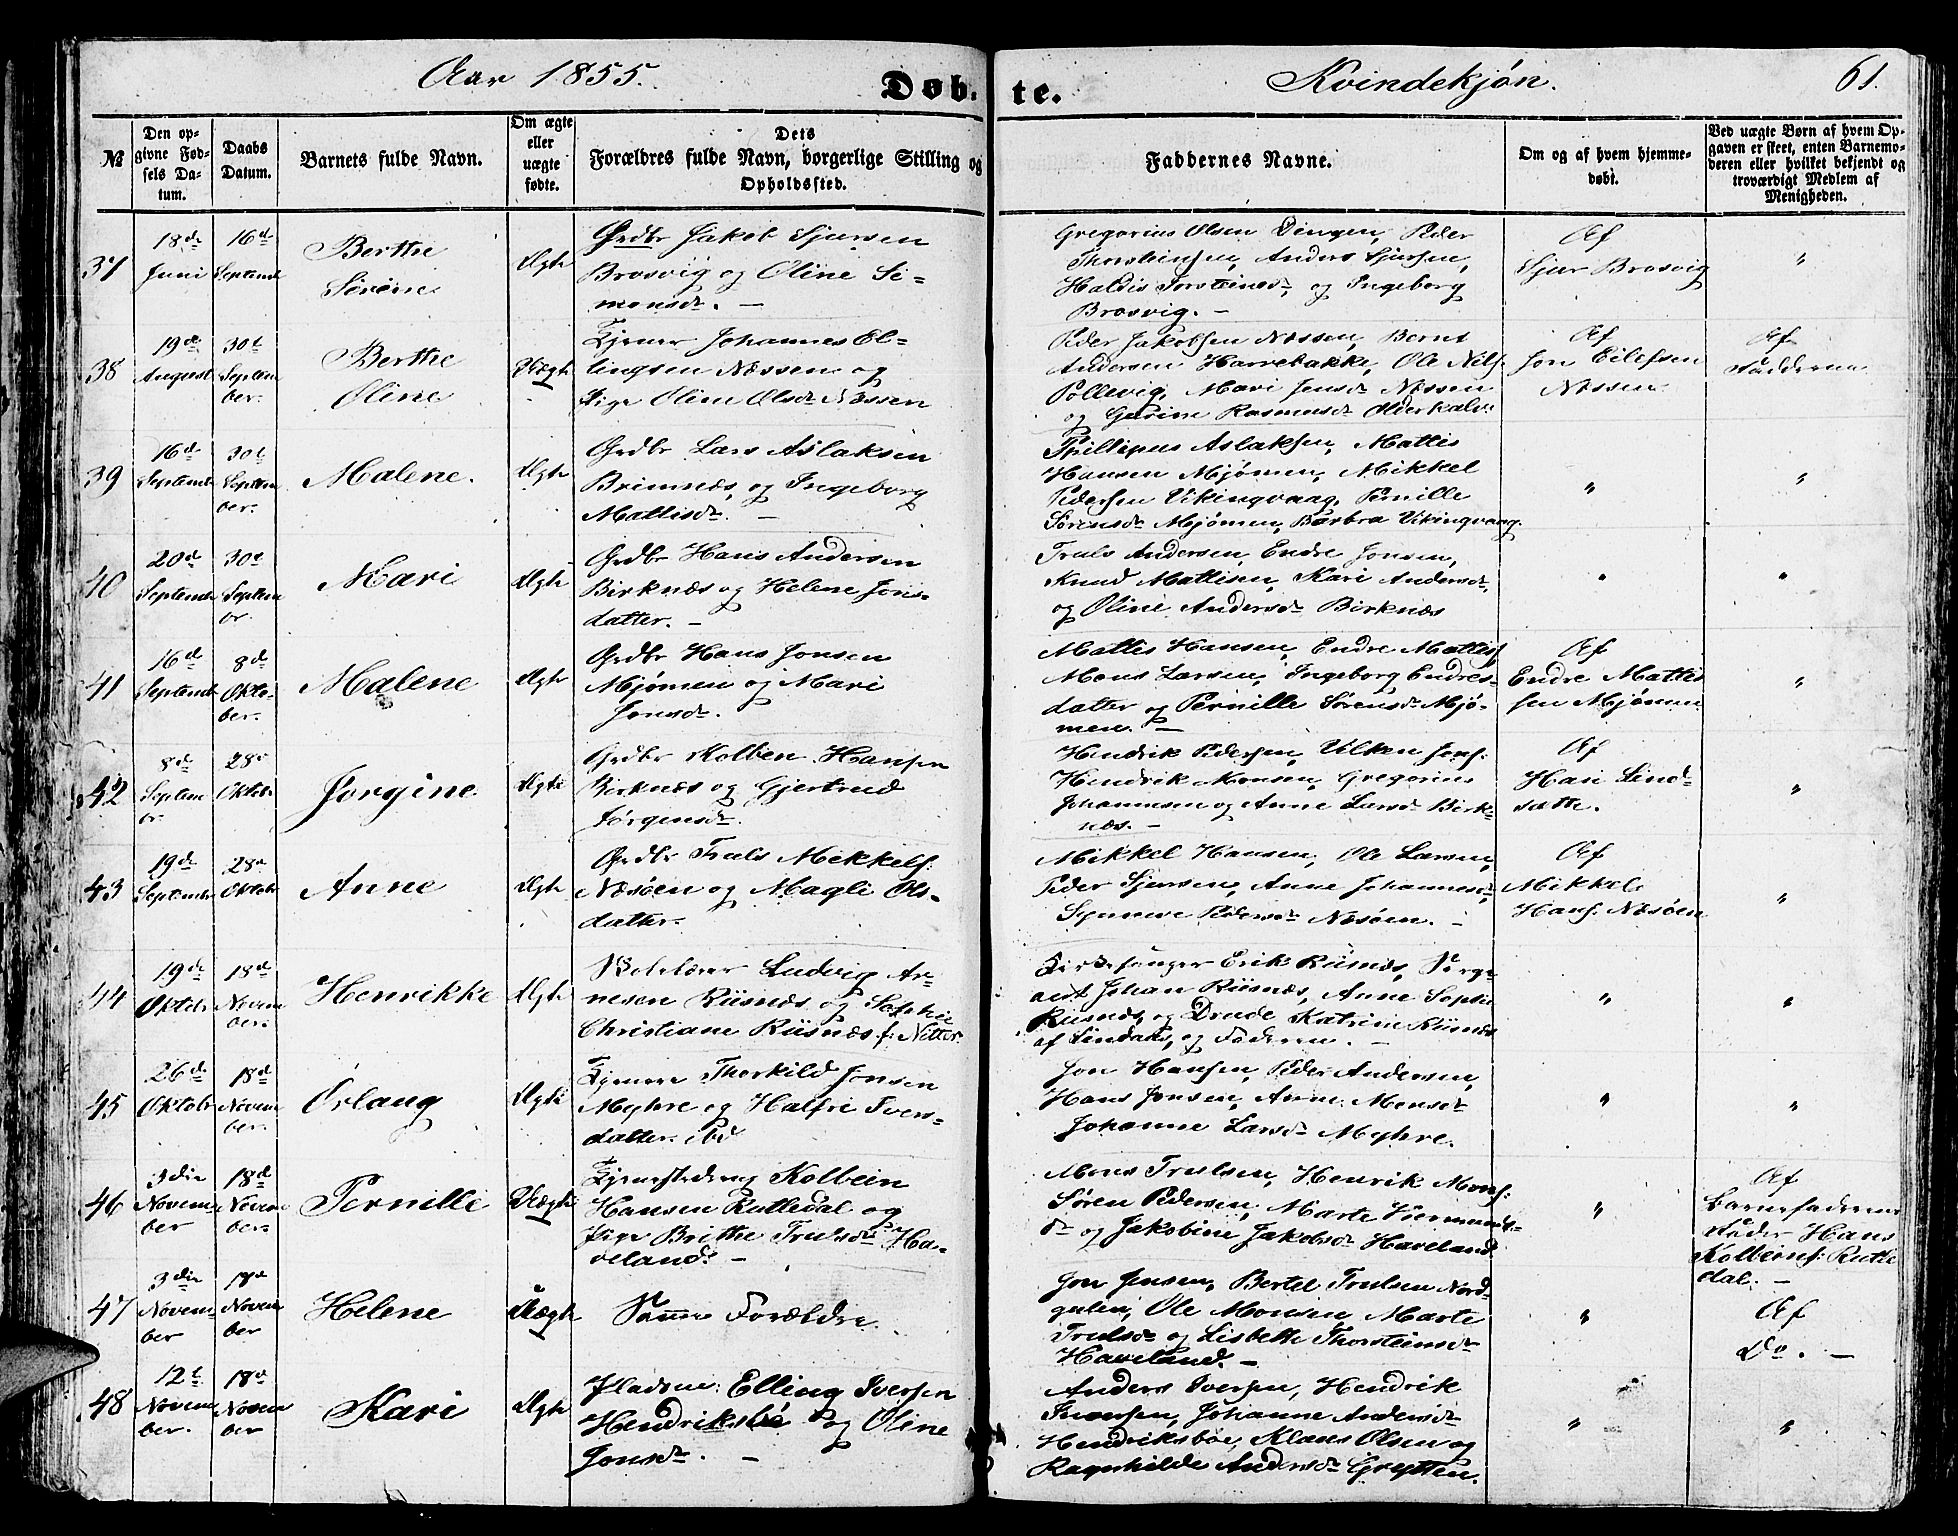 Aar 1855.
Døb-
te.
Kvindekjøn.
61.
№
Den op-
givne Fød-
sels Da-
tum.
Daabs
Datum.
Barnets fulde Navn.
Om ægte
eller
uægte
fødte.
Dets
Forældres fulde Navn, borgerlige Stilling og
Opholdssted.
Faddernes Navne.
Om og af hvem hjemme-
døbt.
Ved uægte Børn af hvem Op-
gaven er skeet, enten Barnemo-
deren eller hvilket bekjendt og
troværdigt Medlem af
Menigheden.
37
18de
Juni
16de
Septembr
Berthe
Sørine
Ægte
Grdbr Jakob Sjursen
Brosvig og Oline Si-
monsdr. —
Gregorius Olsen Dingen, Peder
Thorsteinsen, Anders Sjursen,
Haldis Torsteinsdr, og Ingeborg
Brosvig. —
Af
Sjur Brosvig
"
38
19de
August
30te
Septem
ber.
Berthe
Oline
Uægte
Tjener Johannes El-
lingsen Næssen og
Pige Oline Olsdr Næssen
Peder Jakobsen Næssen, Bernt
Andersen Harrebakke, Ole Nils.
Pollevig, Mari Jensdr Næssen
og Gurine Rasmusdr Olderkalv.
Af
Jon Eilefsen
Næssen
Af
Fadderne
39
16de
Septembr
30te
Septem
ber.
Malene.
Ægte
Grdbr Lars Aslaksen
Brimnæs, og Ingeborg
Mattisdr. —
Phillipus Aslaksen, Mattis
Hansen Mjømen, Mikkel
Pedersen Vikingvaag, Pernille
Sørensdr Mjømen, Barbra Vikingvaag.
"
"
40
20de
Septembr
30te
Septem
br.
Mari
Ægte
Grdbr Hans Andersen
Birknæs og Helene Jons-
datter. —
Truls Andersen, Endre Jonsen,
Knud Mattisen, Kari Andersdr,
og Oline Andersdr Birknæs
"
"
41
16de
Septembr
8de
Okto-
ber.
Malene
Ægte
Grdbr Hans Jonsen
Mjømen og Mari
Jonsdr.
Mattis Hansen, Endre Mattis.
Mons Larsen, Ingeborg Endres-
datter og Pernille Sørensdr Mjø-
men. —
Af
Endre Mattis
sen Mjømen
"
42
8de
Septem
br.
28de
Oktobr
Jørgine
Ægte
Grdbr Kolben Hansen
Birknæs og Gjertrud
Jørgensdr.
Hendrik Pedersen, Vilken Jons.
Hendrik Monsen, Gregorius
Johannesen og Anne Larsdr Birk-
næs. —
Af
Hans Lind-
sætte.
"
43
19de
Septembr
28de
Oktobr
Anne
Ægte
Grdbr Truls Mekkels.
Næsøen og Magli Ols-
datter.
Mikkel Hansen, Ole Larsen,
Peder Sjursen, Anne Johannesdr,
Synneve Pedersdr Næsøen. —
Af
Mikkel
Hans. Næsøen
"
44
19de
Oktobr
18de
Novem
ber.
Henrikke
Ægte
Skolelærer Ludvig Ar-
nesen Riisnæs og Sophie
Christiane Riisnæs f. Nitter.
Kirkesanger Erik Riisnæs, Serge-
ant Johan Riisnæs, Anne Sophie
Riisnæs, og Drude Katrine Riisnæs
af Lindaas, og Faderen. —
"
"
45
26de
Oktobr
18de
Novem
ber.
Ørlaug
Ægte
Tjenere Thorkild Jonsen
Myhre og Halfri Ivers-
datter ibd
Jon Hansen, Peder Andersen,
Hans Jonsen, Anne Monsdr
Johanne Larsdr Myhre.
"
"
46
3die
Novem
ber
18de
Novem
ber.
Pernille
Uægte
Kolbein
Hansen Rutledal og
Pige Brithe Trulsdr Ha-
veland. —
Mons Trulsen, Henrik Mons.
Søren Pedersen, Marte Giermunds-
dr og Jakobine Jakobsdr Haveland
"
Af
Barnefaderens
Fader Hans
Kolbeins. Rutle
dal. —
47
3die
Novem
ber
18de
Novem
ber
Helene
Uægte
Samme Forældre.
Jon Jensen, Bertel Trulsen Nord-
gulen, Ole Monsen, Marte
Trulsdr og Lisbette Thorsteinsdr
Haveland. —
"
Af
Do. —
48
12te
Novem
ber.
18de
Novem
ber
Kari
Ægte
Pladsm. Elling Iversen
Hendriksbø og Oline
Jonsdr. —
Anders Iversen, Hendrik
Iversen, Johanne Andersdr
Hendriksbøe, Klaus Olsen og
Ragnhilde Andersdr Grytten.
"
"